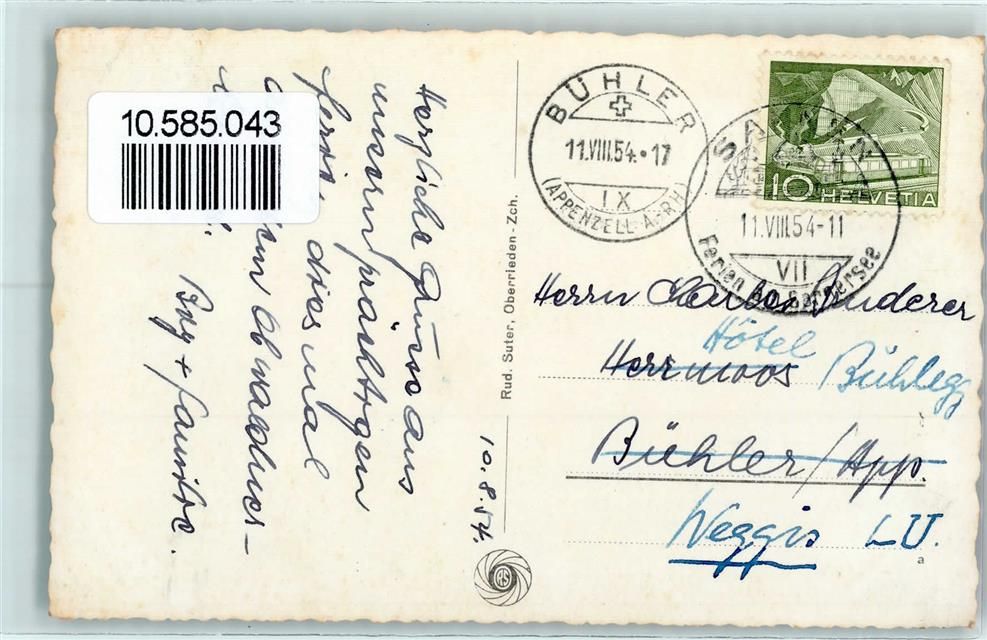 10.585.043
Herzliche Grüsse aus
unsern prächtigen
Ferien diesmal
Obwaldner-
+ Familie.
10.8.54.
Rud. Suter, Oberrieden - Zch.
BÜHLER
11.VIII.54.·17
IX
(APPENZELL A.-RH.)
SARNEN
11.VIII.54-11
VII
Ferien am Sarnersee
10 HELVETIA
Herrn
Hôtel
Herrmoos Bühlegg
Bühler/App.
Weggis LU.
a
RS